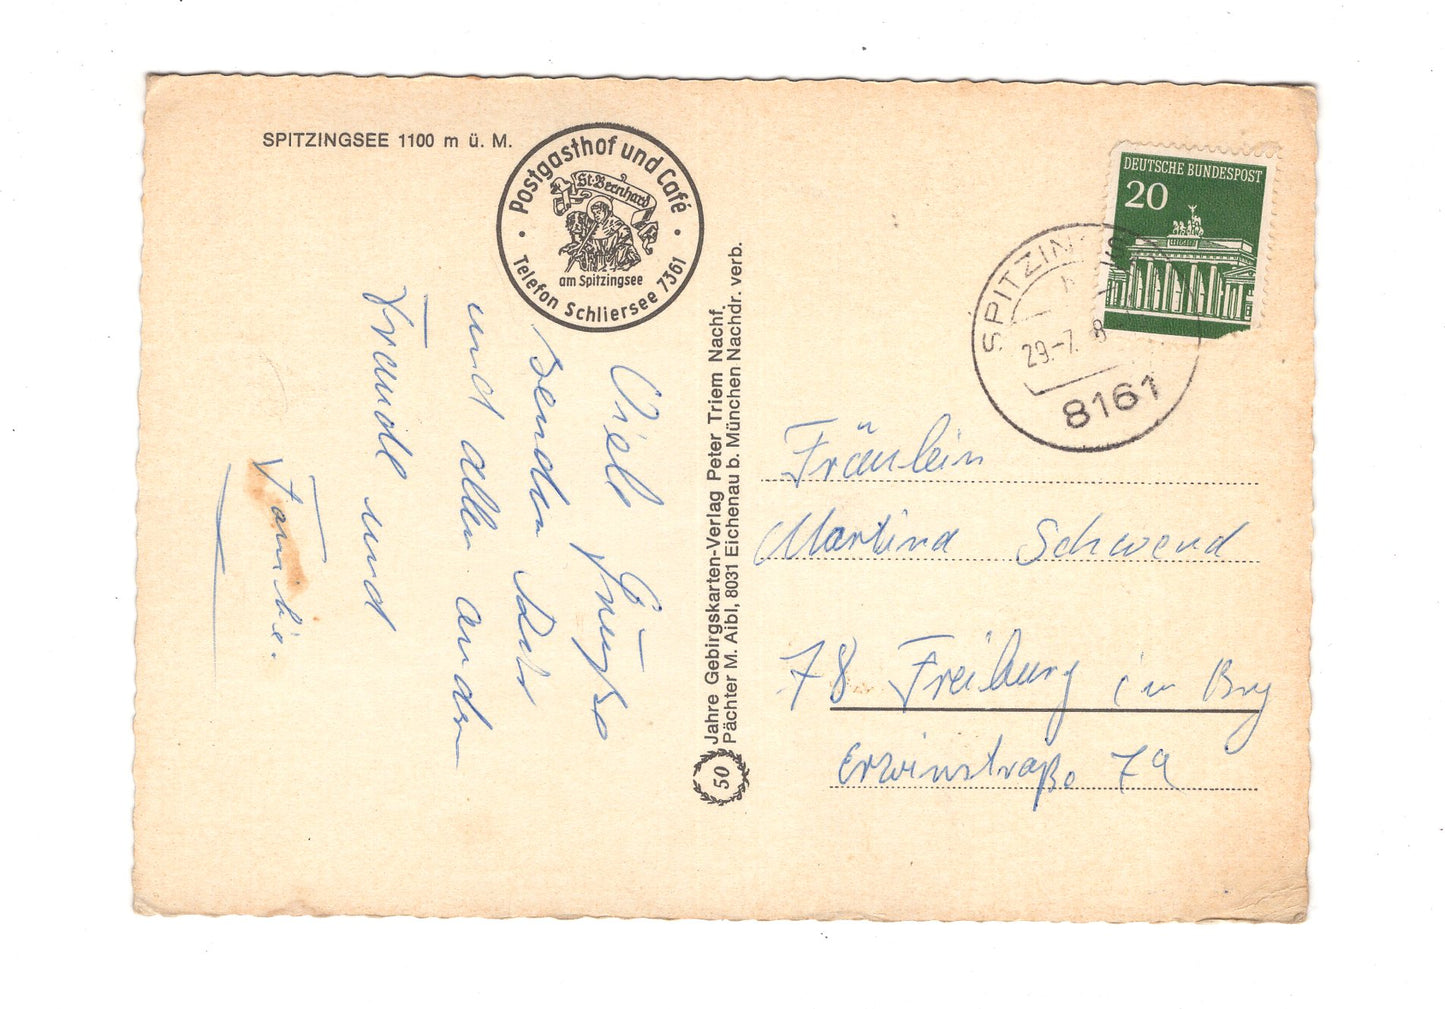 SPITZINGSEE 1100 m ü. M.
Postgasthof und Café
St. Bernhard
am Spitzingsee
Telefon Schliersee 7361
Viele Grüße
senden Dir
und allen andern
Traudl und
Familie.
50 Jahre Gebirgskarten-Verlag Peter Triem Nachf.
Pächter M. Aibl, 8031 Eichenau b. München Nachdr. verb.
DEUTSCHE BUNDESPOST
20
SPITZING
29.-7. 8
8161
Fräulein
Martina Schwend
78 Freiburg im Brg
Erwinstraße 7a